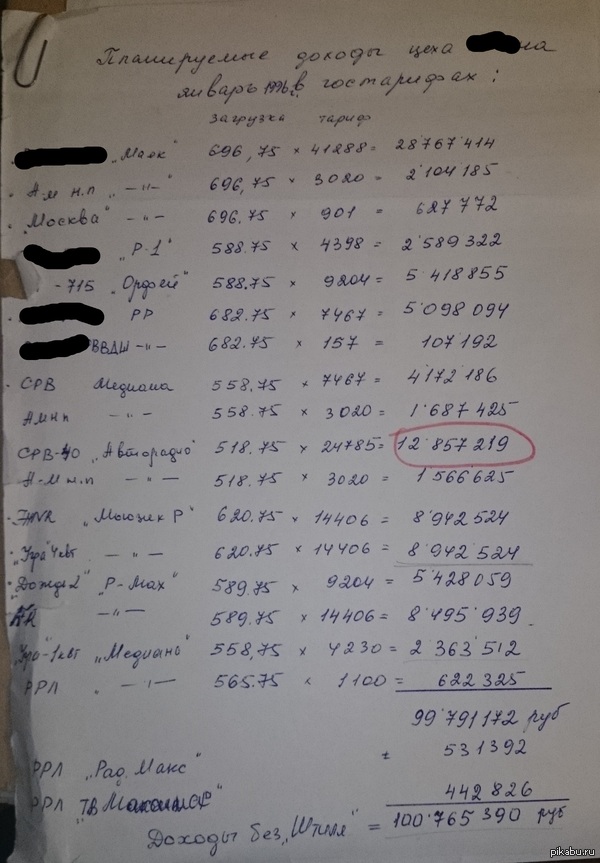 Планируемые доходы цеха на
январь 1996г. в гостарифах:
загрузка тариф
"Маяк" 696,75 × 41288 = 28'767'414
А.м н.п — " — 696,75 × 3020 = 2'104'185
"Москва" — " — 696.75 × 901 = 627'772
"Р-1" 588.75 × 4398 = 2'589'322
-715 "Орфей" 588.75 × 9204 = 5'418'855
РР 682.75 × 7467 = 5'098'094
ВВДШ — " — 682.75 × 157 = 107'192
СРВ Медиана 558.75 × 7467 = 4'172'186
А м н п — " — 558.75 × 3020 = 1'687'425
СРВ-40 "Авторадио" 518.75 × 24785 = 12'857'219
А-М н.п — " — 518.75 × 3020 = 1'566'625
"Мюзик Р" 620.75 × 14406 = 8'942'524
4квт — " — 620.75 × 14406 = 8'942'524
"Дождь 2" "Р-Мах" 589.75 × 9204 = 5'428'059
— " — 589.75 × 14406 = 8'495'939
-1квт "Медиана" 558,75 × 4230 = 2'363'512
РРЛ — " — 565.75 × 1100 = 622'325
99'791'172 руб
+ 531'392
РРЛ "Рад. Макс"
РРЛ ТВ 442'826
Доходы без "Штиля" = 100'765'390 руб
pikabu.ru